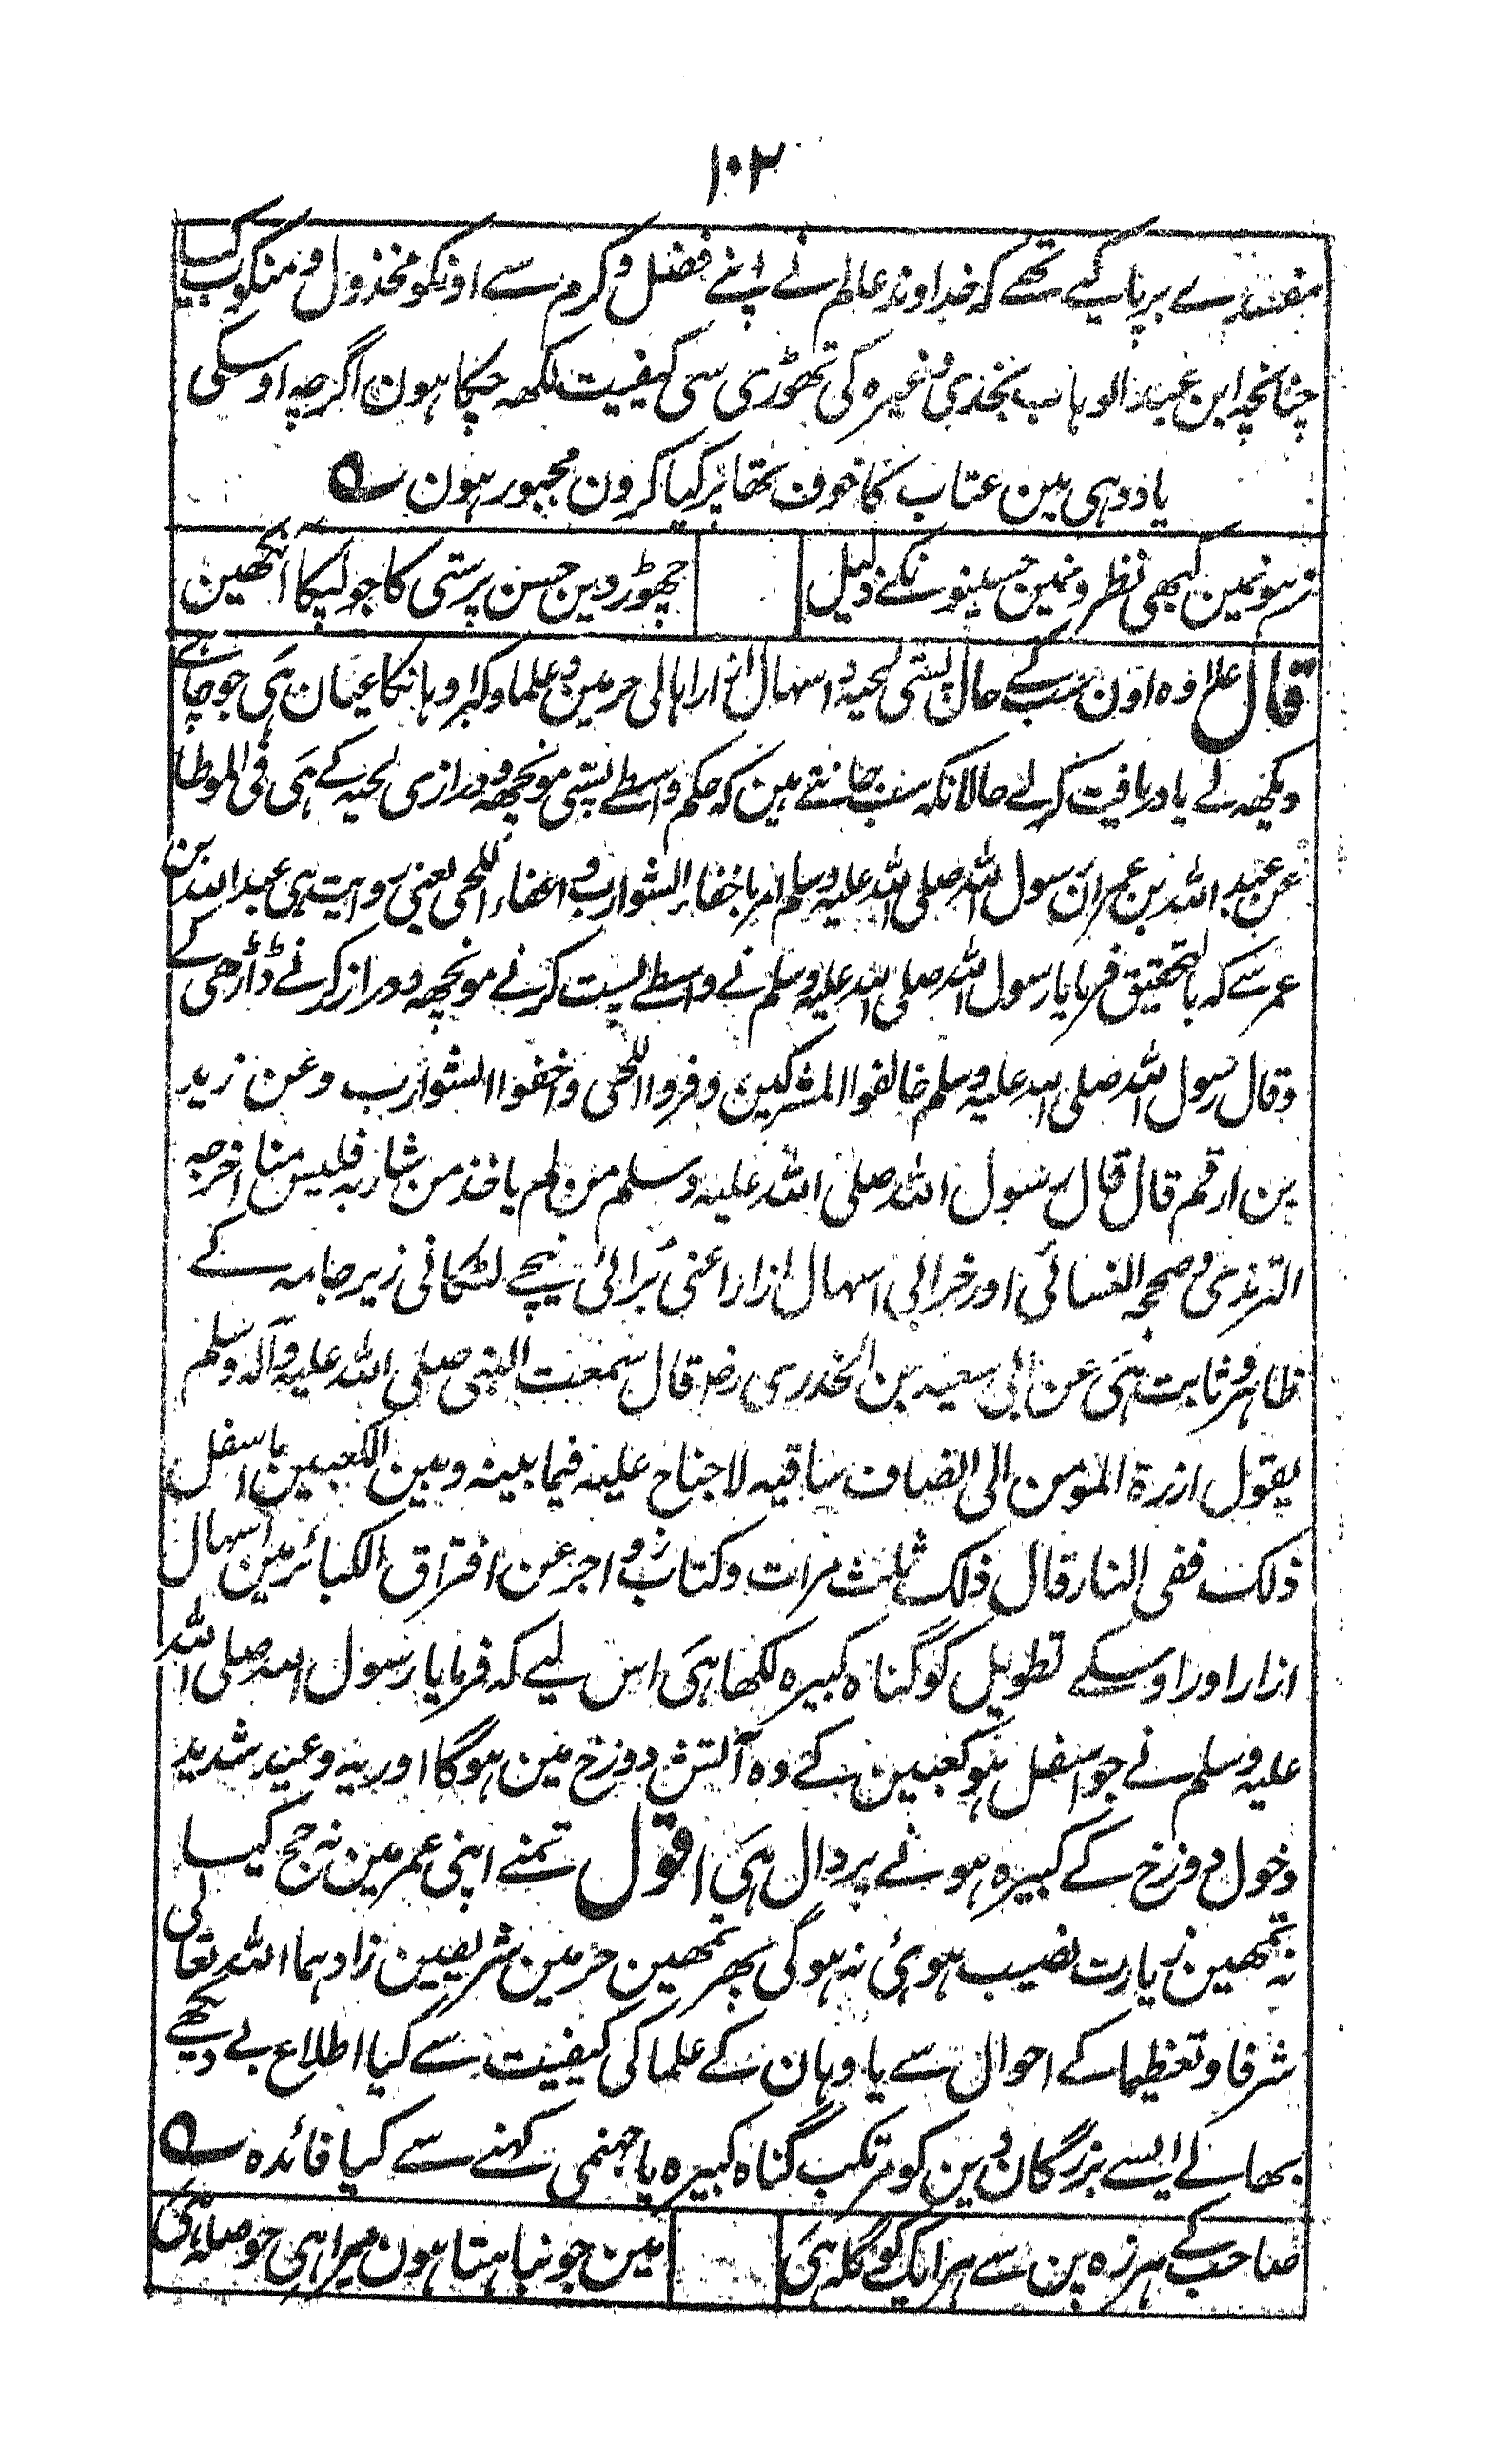 ۱۰۳
مفسدے برپا کیے تھے کہ خداوند عالم نے اپنے فضل و کرم سے اونکو مخذول و منکوب کیا
چنانچہ ابن عبد الوہاب نجدی وغیرہ کی تھوڑی سی کیفیت لکھہ چکا ہون اگرچہ اوسکی
یاددہی مین عتاب کا خوف تھا پر کیا کرون مجبور ہون ؎
نہ ہونمین کبھی نظرونمین حسینونکے ذلیل چھوڑ دین حسن پرستی کا جو لپکا آنکھین
قال علاوہ اون سب کے حال پستی لحیہ و اسہال ازار اہالی حرمین و علما و کبراوہانکا عیان ہی جو چاہے
دیکھہ لے یا دریافت کر لے حالانکہ سب جانتے ہین کہ حکم واسطے پستی مونچھہ و درازی لحیہ کے ہی فی الموطا
عن عبد اللہ بن عمر ان رسول اللہ صلی اللہ علیہ وسلم امر باحفاء الشوارب و اعفاء اللحی یعنی روایت ہی عبد اللہ بن
عمر سے کہ بالتحقیق فرمایا رسول اللہ صلی اللہ علیہ وسلم نے واسطے پست کرنے مونچھہ و دراز کرنے ڈاڑھی کے
وقال رسول اللہ صلی اللہ علیہ وسلم خالفوا المشرکین وفروا اللحی واحفوا الشوارب وعن زید
بن ارقم قال قال رسول اللہ صلی اللہ علیہ وسلم من لم یاخذ من شاربہ فلیس منا اخرجہ
الترمذی وصححہ النسائی اور خرابی اسہال ازار اعنی برائی نیچے لٹکانی زیر جامہ کے
ظاہر و ثابت ہی عن ابی سعید بن الخدری رضہ قال سمعت النبی صلی اللہ علیہ وآلہ وسلم
یقول ازرة المومن الی انصاف ساقیہ لا جناح علیہ فیما بینہ وبین الکعبین ما اسفل
ذلک ففی النار قال ذلک ثلث مرات وکتاب زواجر عن اقتراق الکبائر مین اسہال
ازار اور اوسکے تطویل کو گناہ کبیرہ لکھا ہی اس لیے کہ فرمایا رسول اللہ صلی اللہ
علیہ وسلم نے جو اسفل ہو کعبین کے وہ آتش دوزخ مین ہوگا اور یہ وعید شدید
دخول دوزخ کے کبیرہ ہونے پر دال ہی اقول تمنے اپنی عمر مین نہ حج کیا
نہ تمھین زیارت نصیب ہوئی نہ ہوگی پھر تمھین حرمین شریفین زادہما اللہ تعالی
شرفا و تعظیما کے احوال سے یا وہان کے علما کی کیفیت سے کیا اطلاع بے دیکھے
بھالے ایسے بزرگان دین کو مرتکب گناہ کبیرہ یا جہنمی کہنے سے کیا فائدہ ؎
صاحب کے ہرزہ پن سے ہر ایک کو گلہ ہی مین جو نباہتا ہون میرا ہی حوصلہ ہی